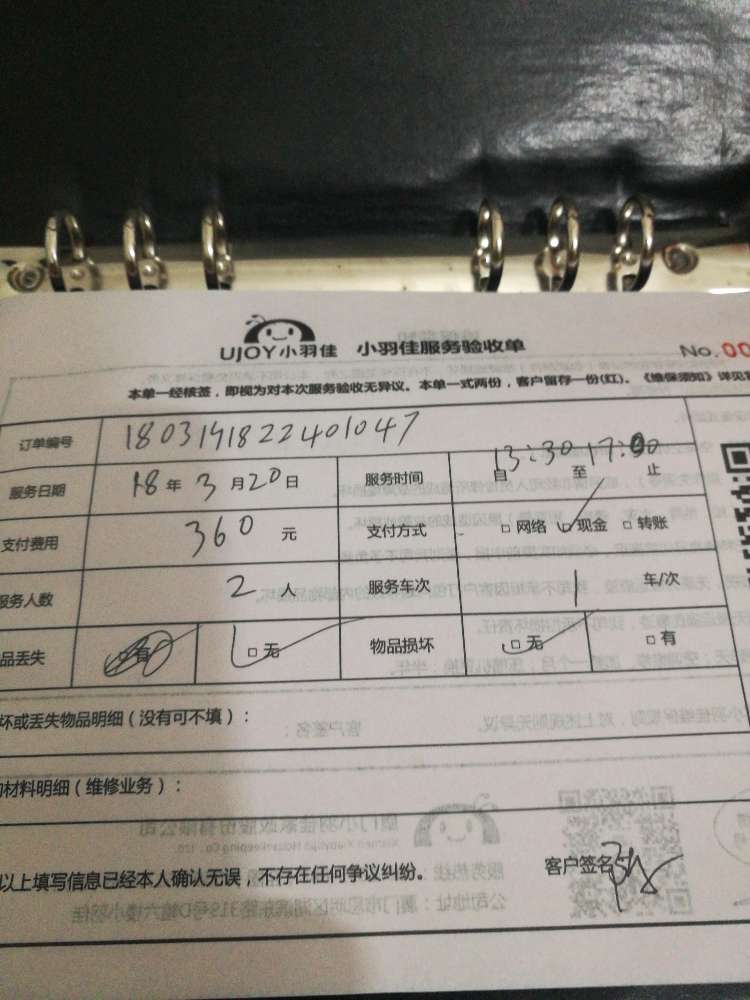 UJOY小羽佳 小羽佳服务验收单 No. 00
本单一经核签，即视为对本次服务验收无异议。本单一式两份，客户留存一份(红)。《维保须知》详见
订单编号 1803191822401047
服务日期 18年3月20日 服务时间 自13:30至17:00止
支付费用 360元 支付方式 □网络 □现金 □转账
服务人数 2人 服务车次 1 车/次
品丢失 □有 □无 物品损坏 □无 □有
坏或丢失物品明细（没有可不填）：
材料明细（维修业务）：
以上填写信息已经本人确认无误，不存在任何争议纠纷。 客户签名